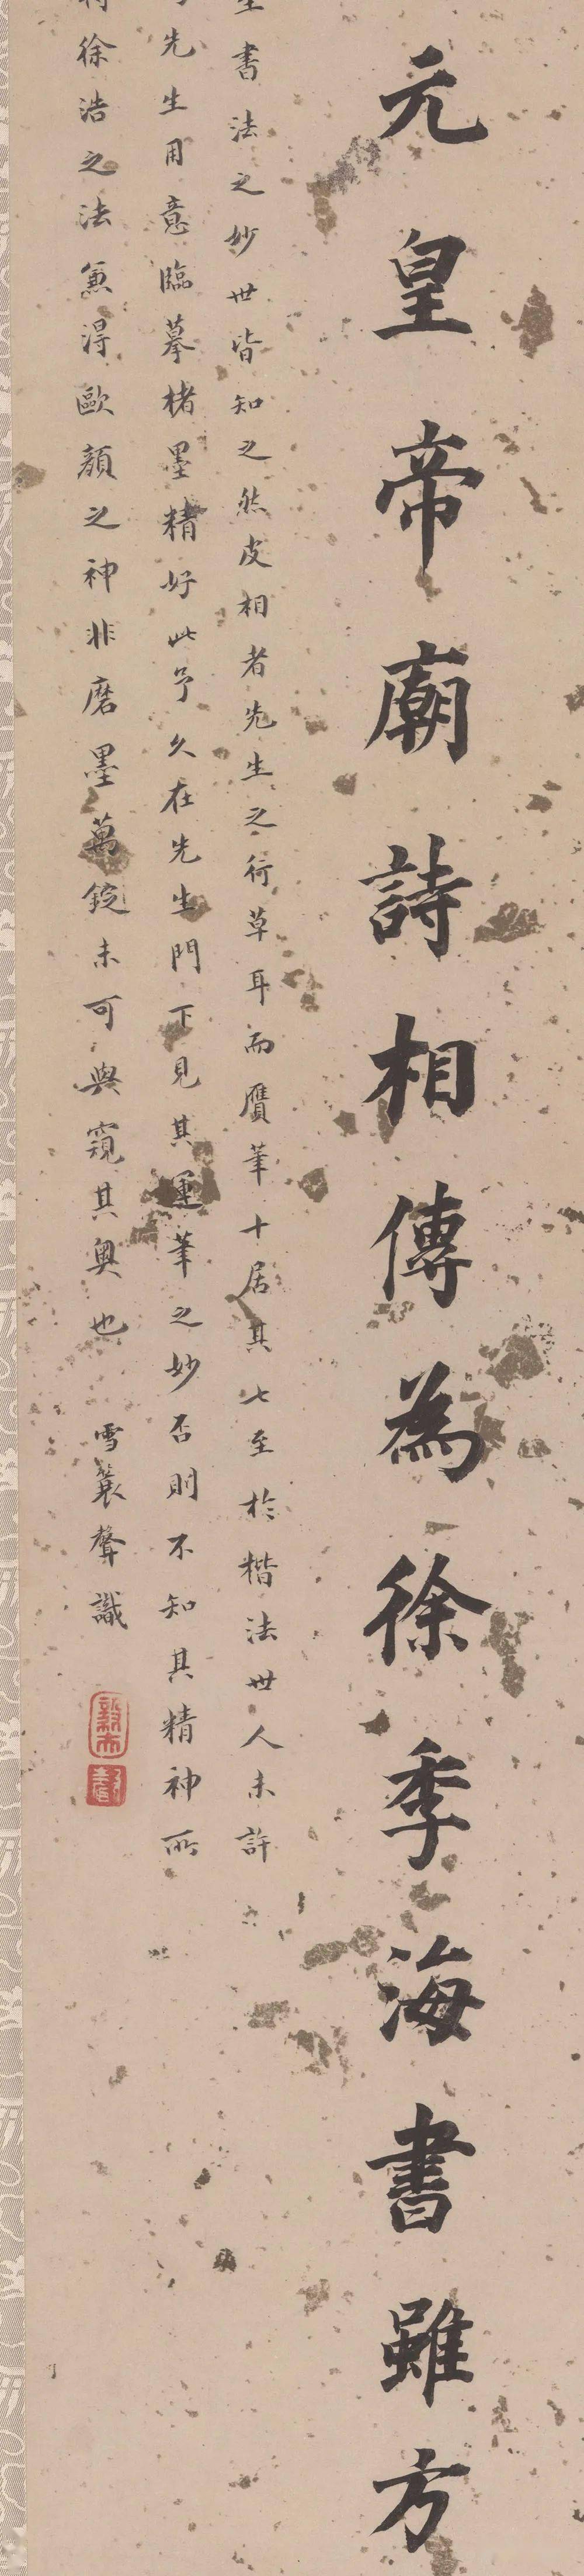 元皇帝廟詩相傳為徐季海書雖方
書法之妙世皆知之然皮相者先生之行草耳而贗筆十居其七至於楷法世人未許
先生用意臨摹楮墨精好此予久在先生門下見其運筆之妙否則不知其精神所
徐浩之法兼得歐顏之神非磨墨萬錠未可與窺其奧也 雪蓑聲識